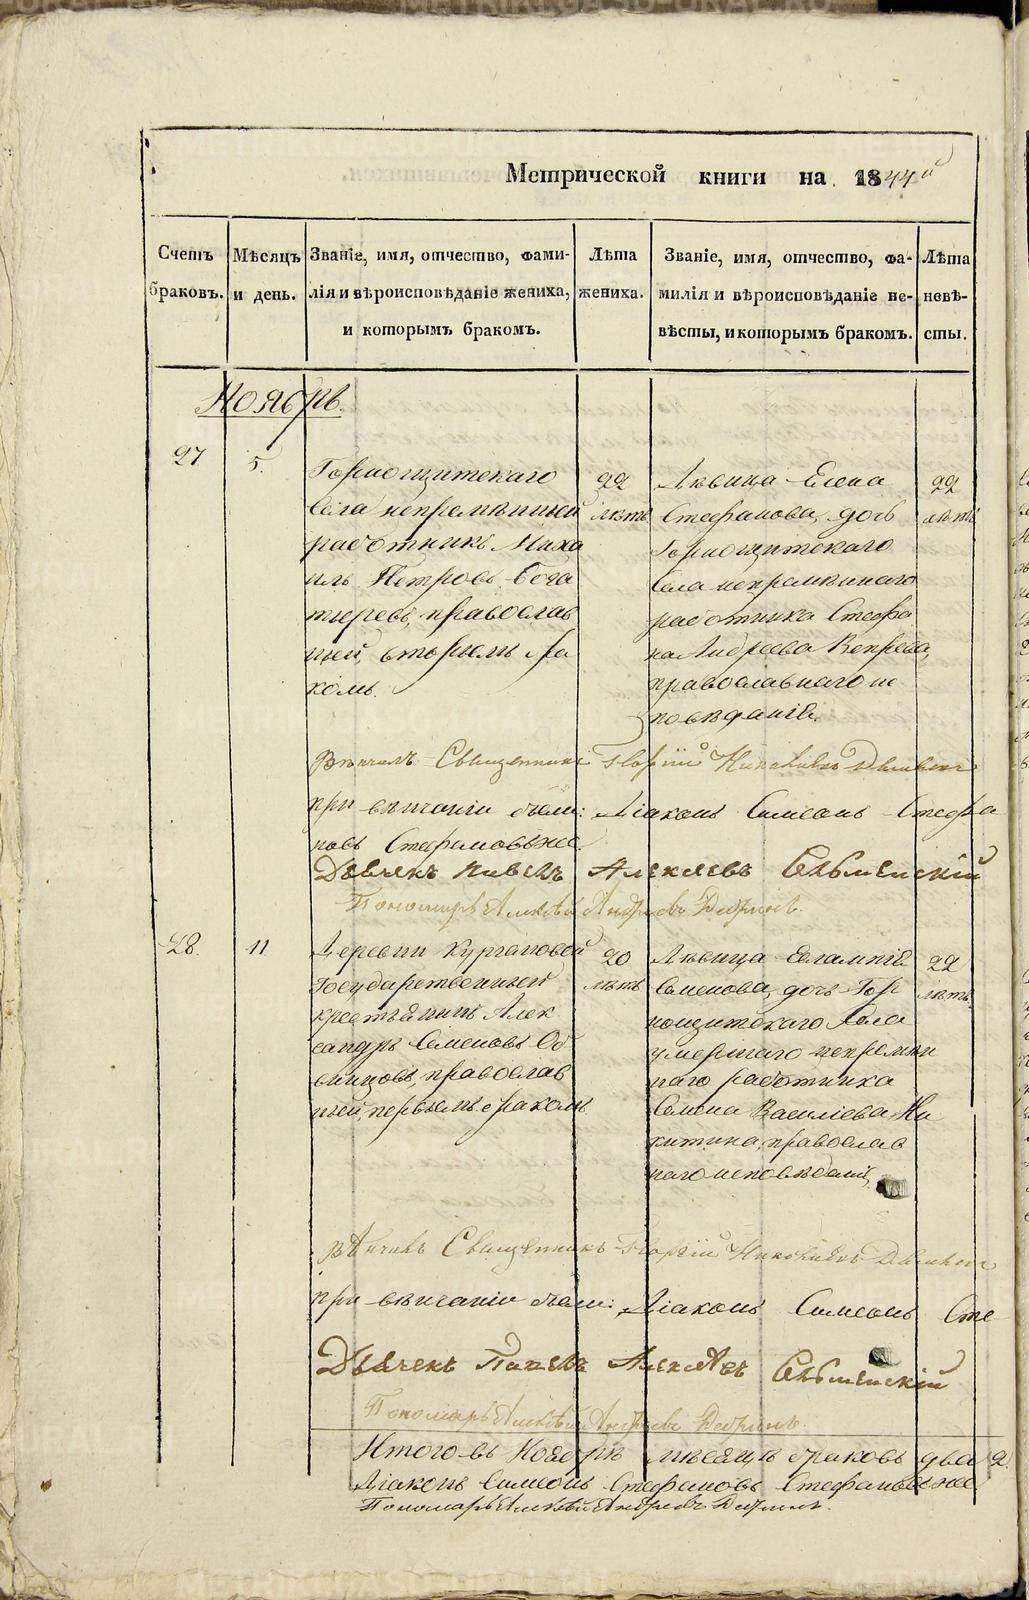 Метрической книги на 1844й
Счетъ браковъ.
Мѣсяцъ и день.
Званіе, имя, отчество, фами-
лія и вѣроисповѣданіе жениха,
и которымъ бракомъ.
Лѣта
жениха.
Званіе, имя, отчество, фа-
милія и вѣроисповѣданіе не-
вѣсты, и которымъ бракомъ.
Лѣта
невѣ-
сты.
Ноябрь.
27
5.
Горнощитскаго
Села непремѣнный
работникъ Миха
илъ Петровъ Бога
тыревъ, православ
ный, вторымъ бра
комъ.
22
лѣтъ
Дѣвица Елена
Стефанова, дочь
Горнощитскаго
Села непремѣннаго
работника Стефа
на Андреева Вепрева,
православнаго ис
повѣданія.
22
лѣтъ
Вѣнчалъ Священникъ Георгій Николаевъ
При вѣнчаніи были: Діаконъ Симеонъ Стефа
новъ Стефановъ же
Дьячекъ Павелъ Алексѣевъ
Пономарь Алексѣй Андреевъ
28.
11
Деревни Кургановой
Государственный
крестьянинъ Алек
сандръ Семеновъ Ов
чинцовъ, православ
ный, первымъ бракомъ
20
лѣтъ
Дѣвица Евлампія
Семенова, дочь Гор
нощитскаго Села
умершаго непремѣн
наго работника
Семена Василіева Ни
китина, православ
наго исповѣданія,
22
лѣтъ.
Вѣнчалъ Священникъ Георгій Николаевъ
При вѣнчаніи были: Діаконъ Симеонъ Сте
Дьячекъ Павелъ Алексѣевъ
Пономарь Алексѣй Андреевъ
Итого въ Ноябрѣ мѣсяцѣ браковъ два 2.
Діаконъ Симеонъ Стефановъ Стефановъ же
Пономарь Алексѣй Андреевъ
METRIKI.GASU-URAL.RU